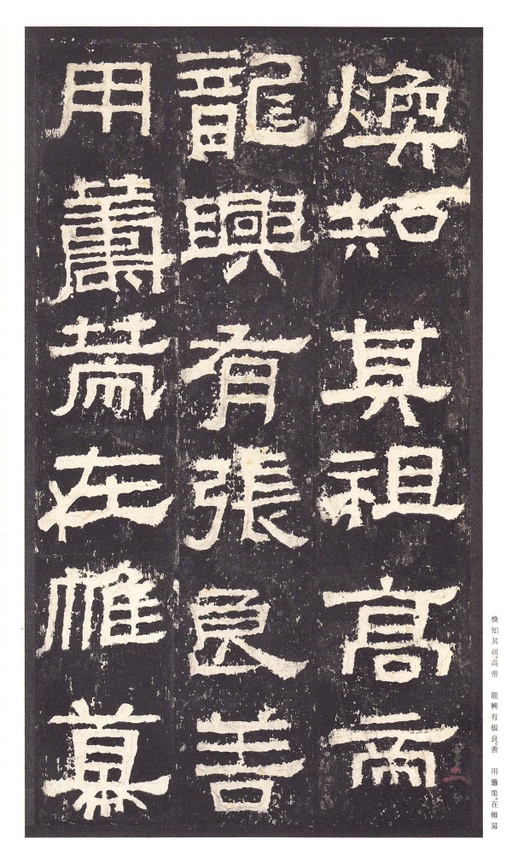 煥知其祖高帝
龍興有張良善
用籌策在帷幕
煥知其祖。高帝　龍興有張良。善　用籌策。在帷幕